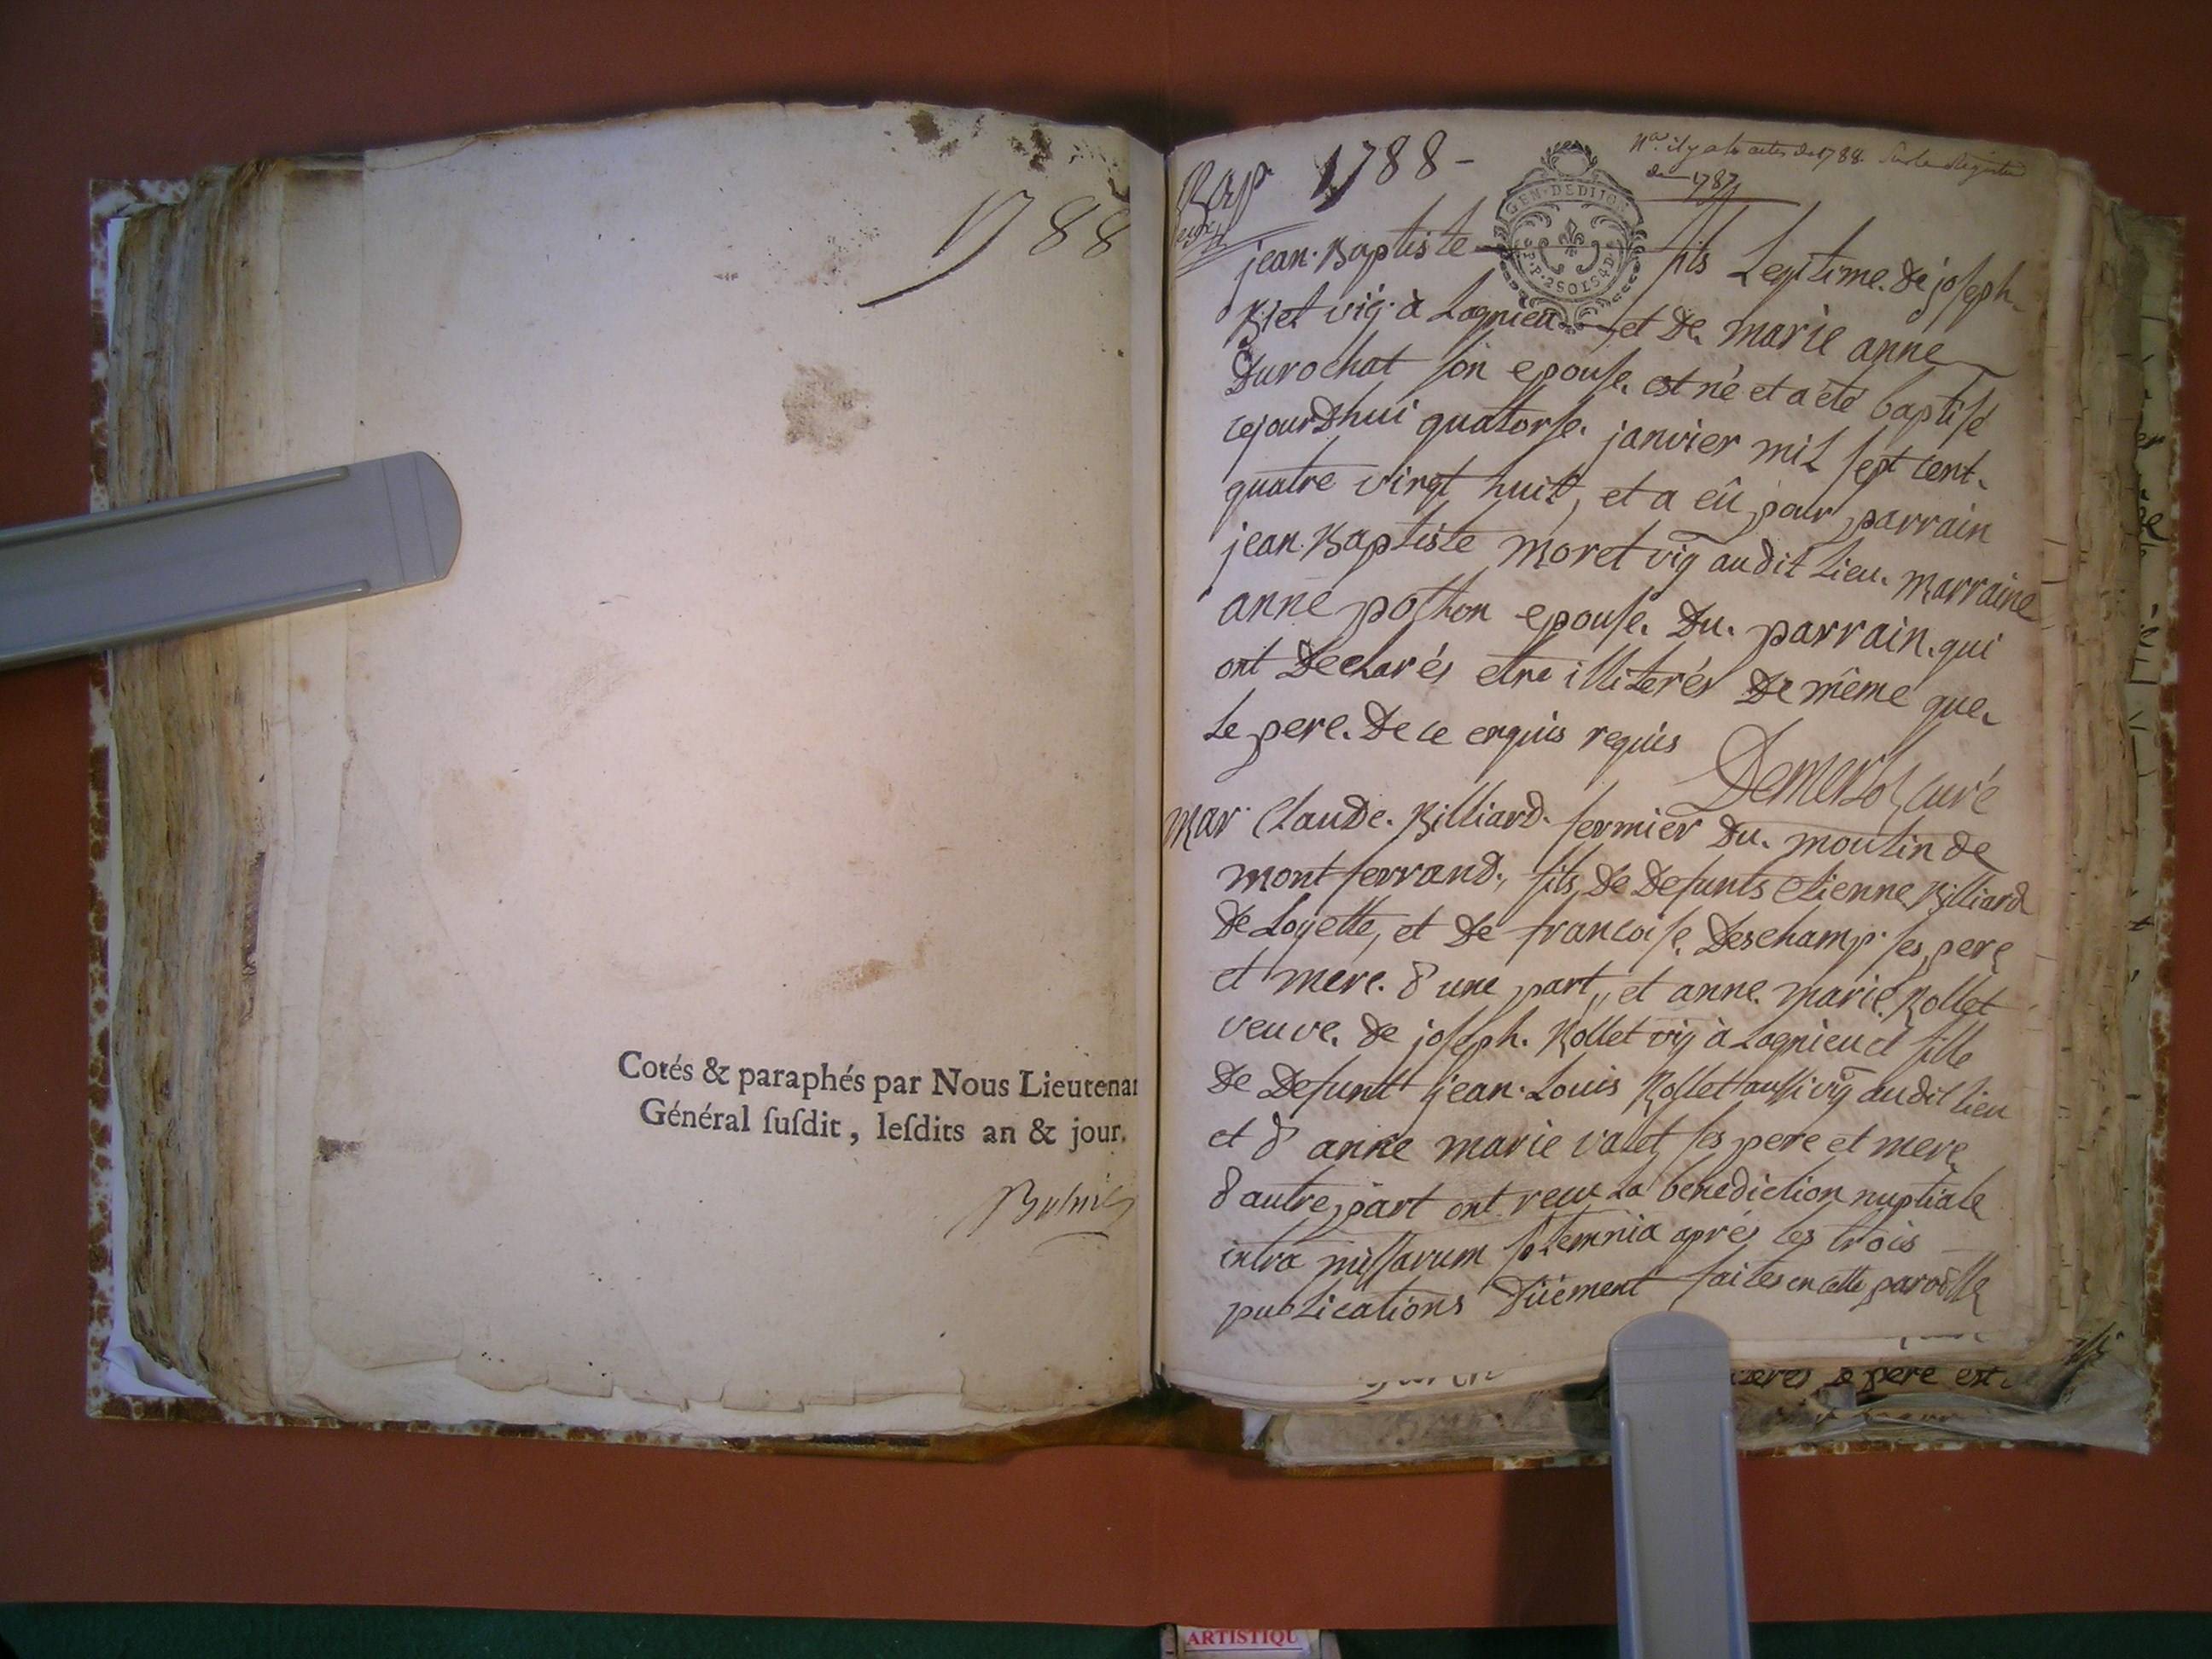 1788
Cotés & paraphés par Nous Lieutenan
Général ſuſdit, leſdits an & jour.
Bap 1788 -
Na. il y a 4 actes de 1788. Sur le Registre
de 1787
GEN · DE DIJON
2 SOLS 4 D
jean. Baptiste fils Legitime. de joseph.
Biet vig. à Lagnieu et de. marie anne
Durochat son epouse. est né et a été baptisé
cejourdhui quatorse. janvier mil sept cent.
quatre vingt huit, et a eû pour parrain
jean. Baptiste moret vig audit Lieu. marraine
anne pothon epouse. Du. parrain. qui
ont Declarés etre illiterés De même que.
Le pere. De ce enquis requis
Demerloz curé
Mar. Claude. Billiard. fermier Du. moulin de
mont ferrand., fils, De Defunts etienne Billiard
De Loyette, et De francoise. Deschamp. ses, pere
et mere. d'une part,, et anne. marie. Rollet
veuve. de joseph. Rollet vig à Lagnieu et fille
De Defunt jean. Louis Rollet aussi vig audit lieu
et d'anne marie valet, ses pere et mere
d'autre, part ont recu La benediction nuptiale
intra missarum solemnia aprés les trois
publications düement faites en cette paroisse
pere est
ARTISTIQU